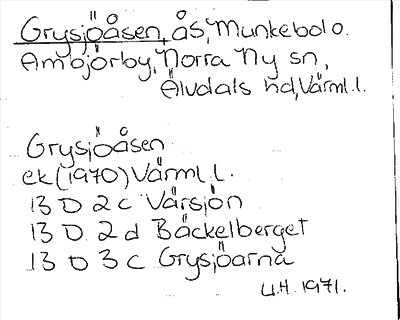 Grysjöåsen, ås, Munkebol o.
Ambjörby, Norra Ny sn,
Älvdals hd, Värml. l.
Grysjöåsen
ek (1970) Värml. l.
13 D 2 c Värsjön
13 D 2 d Bäckelberget
13 D 3 c Grysjöarna
U.H. 1971.